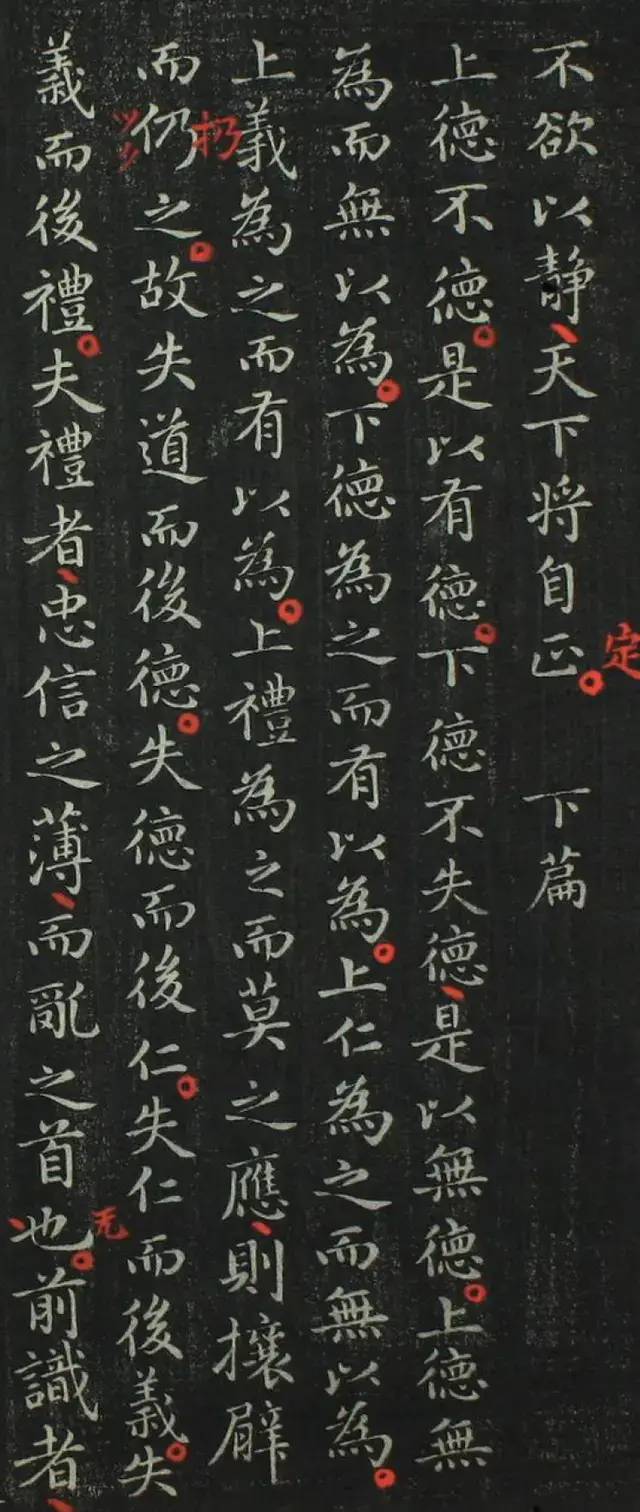 不欲以静、天下将自正。 下篇
定
上德不德。是以有德。下德不失德、是以無德。上德無
為而無以為。下德為之而有以為。上仁為之而無以為。
上義為之而有以為。上禮為之而莫之應、則攘臂
扔
而仍之。故失道而後德。失德而後仁。失仁而後義。失
无
義而後禮。夫禮者、忠信之薄、而亂之首也。前識者、